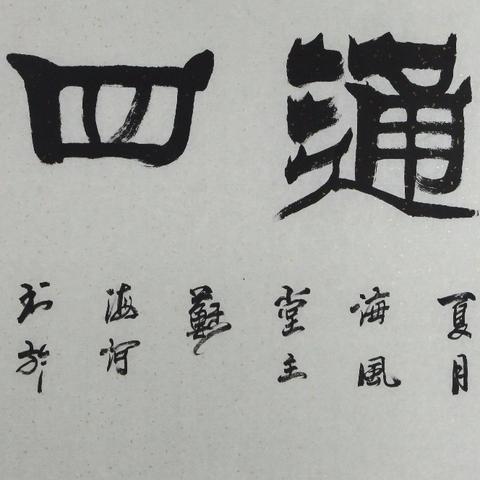 通四
夏月
海風
堂主
蘇
海河
於